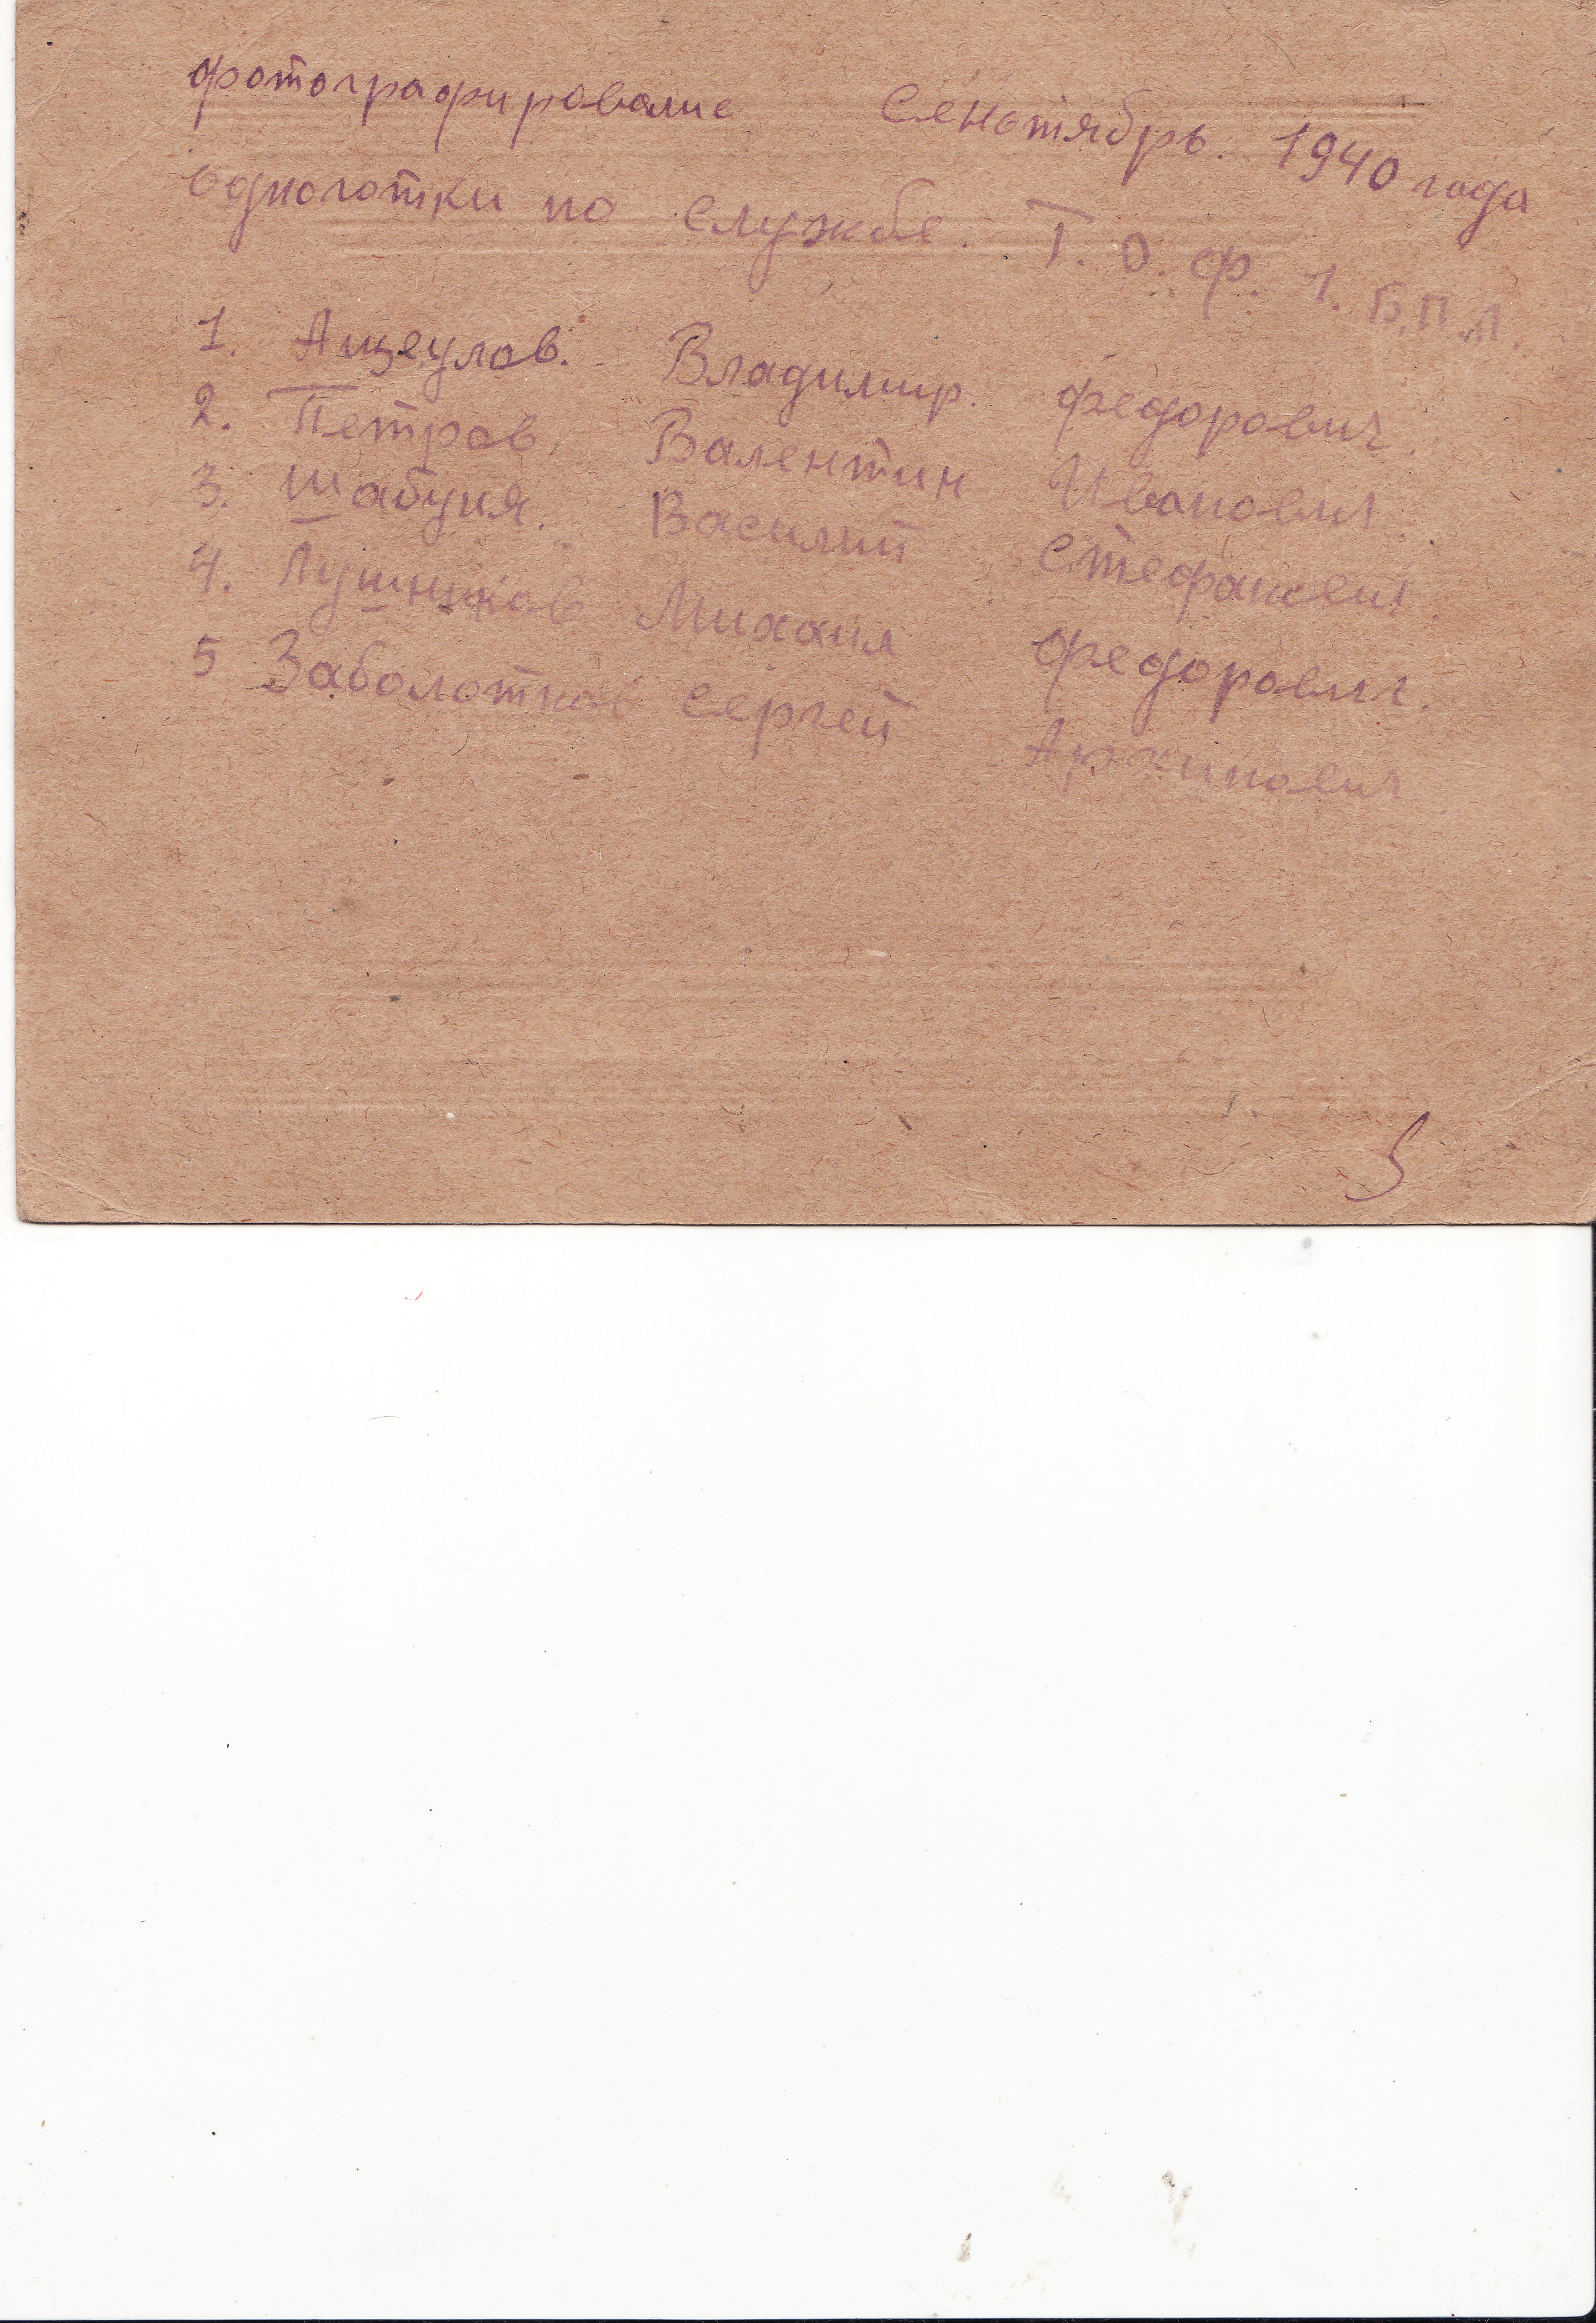 фотографировалис Сеньтябрь. 1940 года
однолотки по службе. Т. О. Ф. 1. Б.П.Л.
1. Ащеулов. Владимир. Федорович.
2. Петров Валентин Иванович
3. Шабуня. Василий Стефанович.
4. Лушников Михаил Федорович.
5 Заболотнов Сергей Архипович